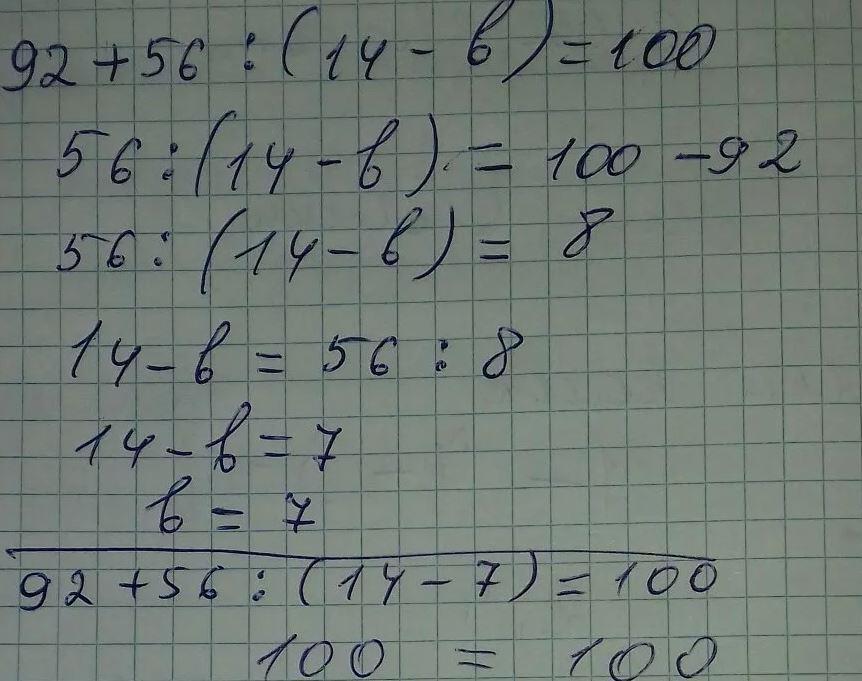 92 + 56 : (14 - b) = 100
56 : (14 - b) = 100 - 92
56 : (14 - b) = 8
14 - b = 56 : 8
14 - b = 7
b = 7
92 + 56 : (14 - 7) = 100
100 = 100